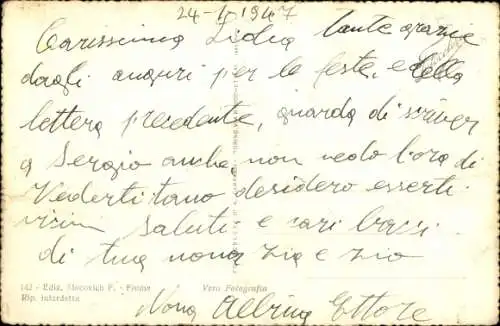 24-1-1947
Carissima Lidia tante grazie
degli auguri per le feste, e della
lettera precedente, guarda di scriver
a Sergio anche non vedo l'ora di
Vederti tano desidero esserti
vicin saluti e cari bacci
di tua nona zia e zio
Nona Albina Ettore
142 - Ediz. Slocovich F. - Fiume
Rip. interdetta
Vera Fotografia